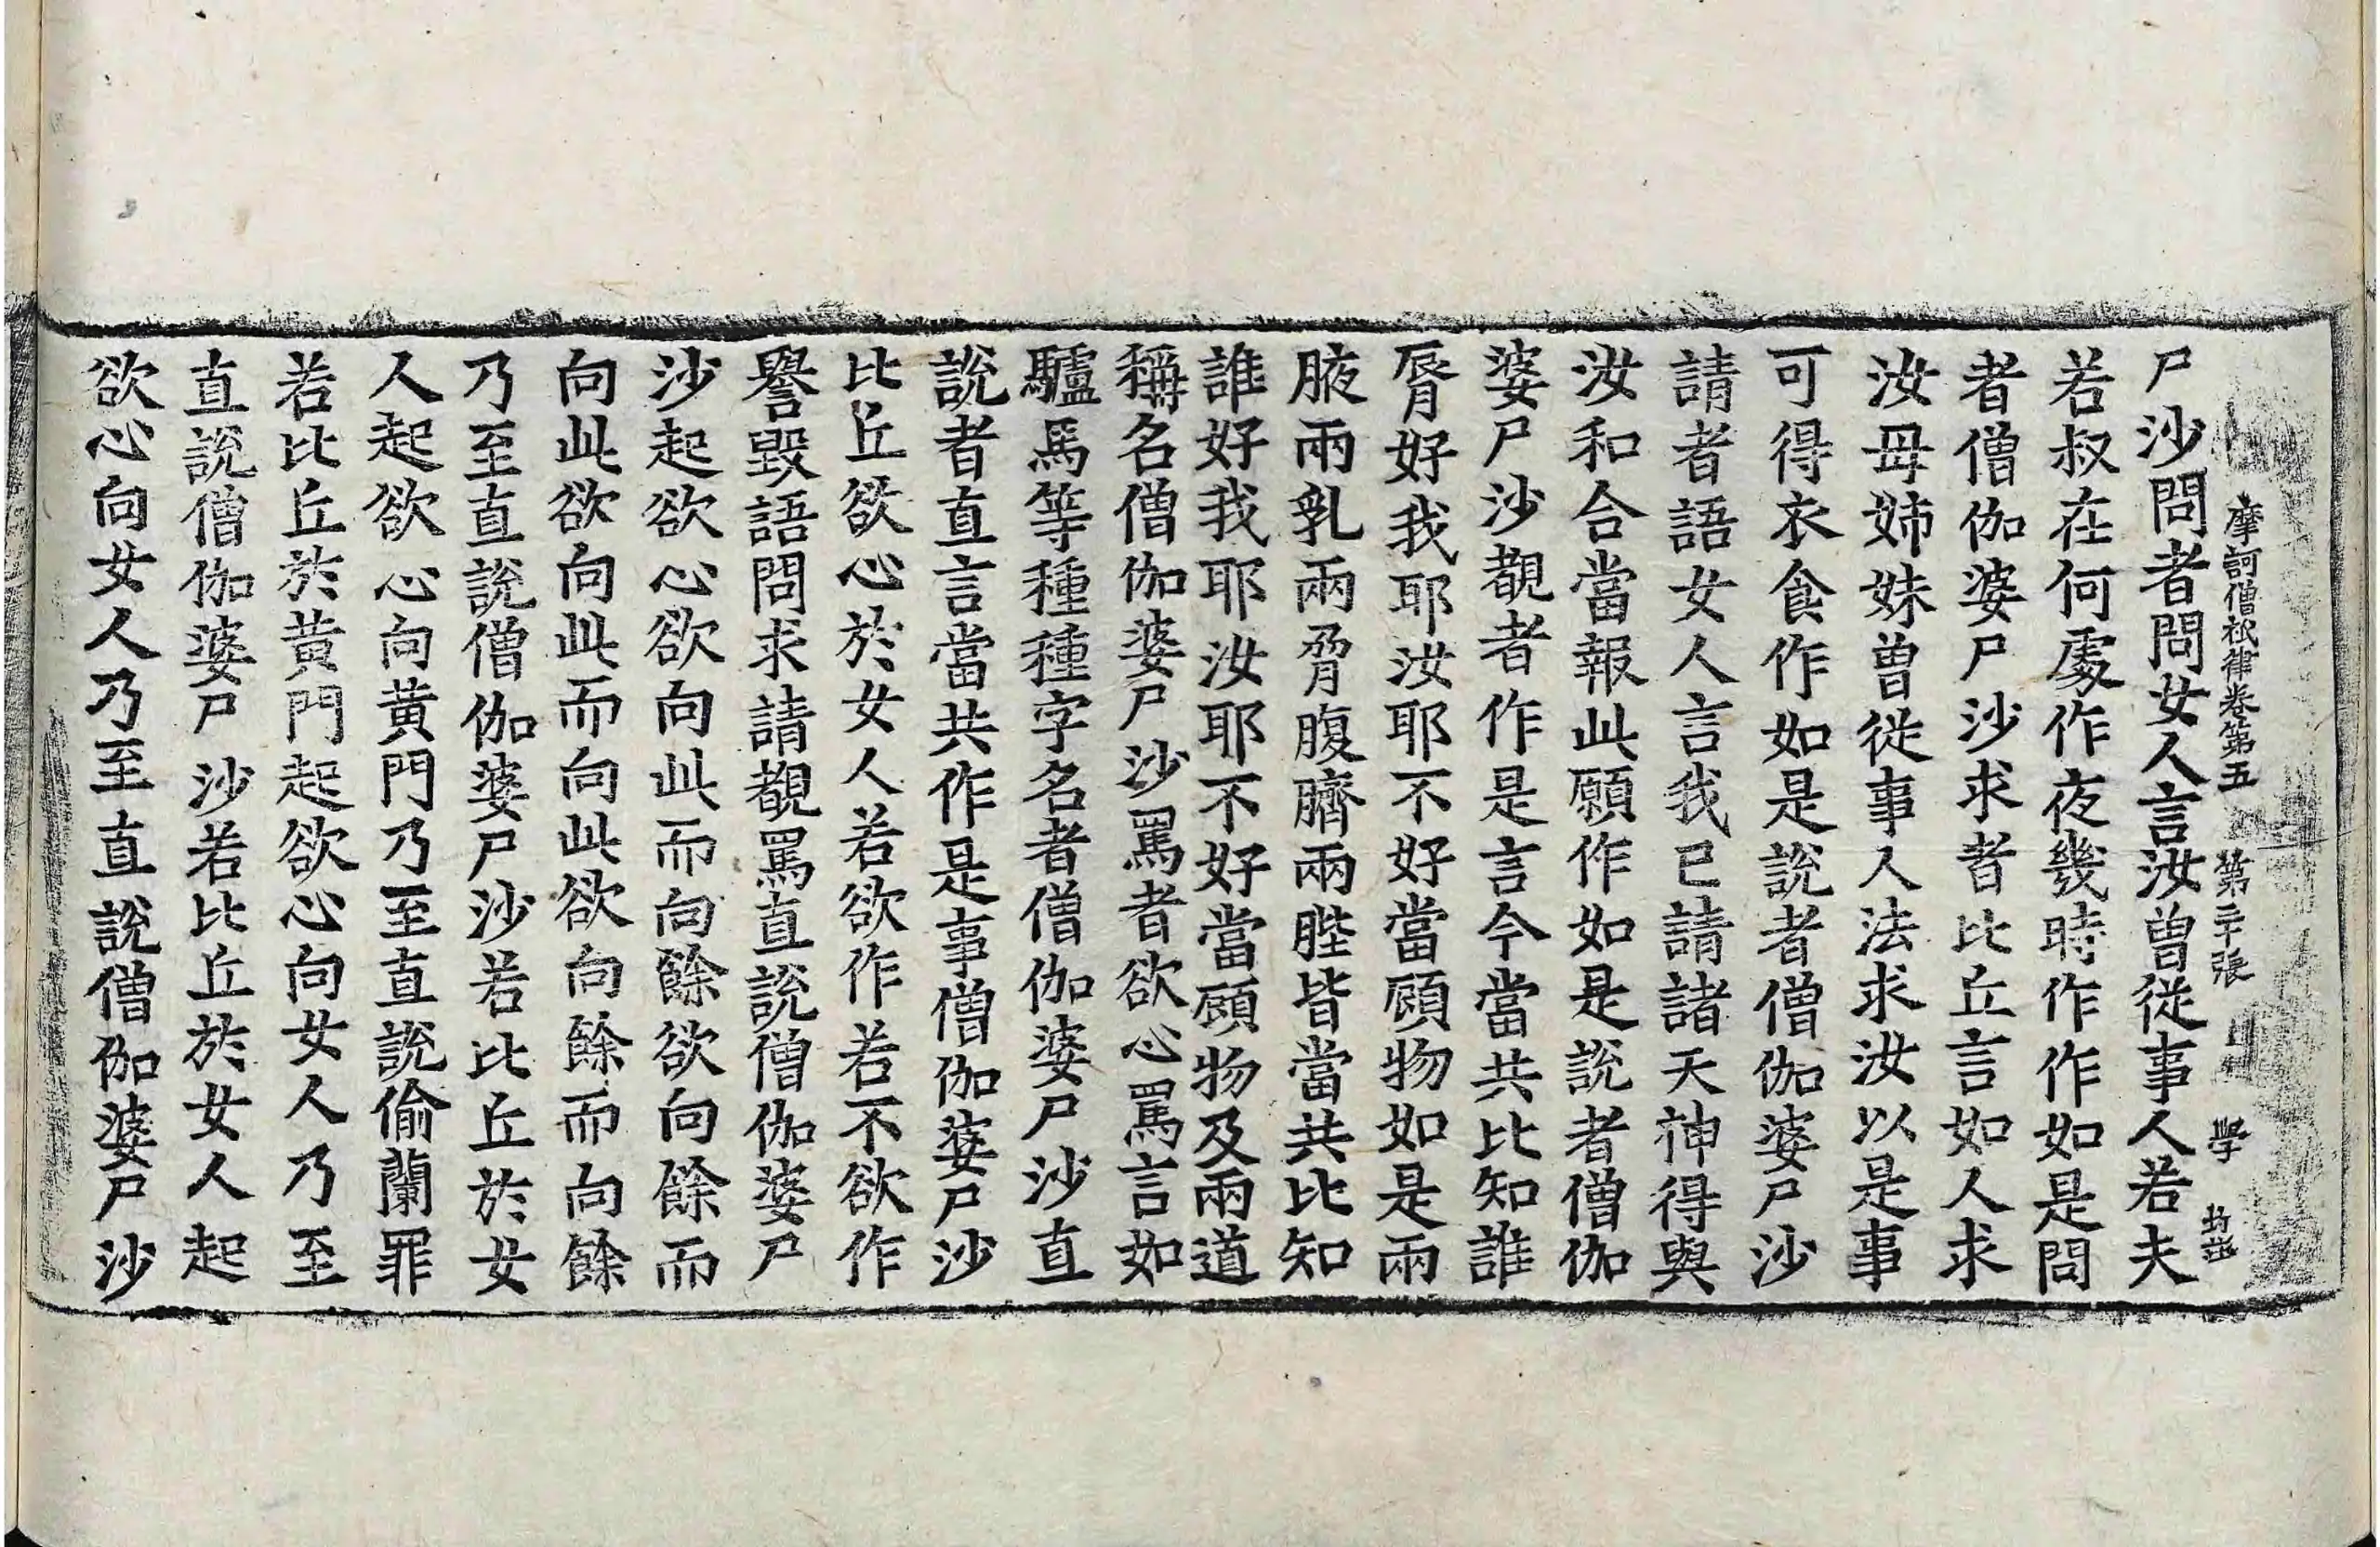 尸沙問者問女人言汝曾從事人若夫
摩訶僧祇律卷第五 第二十張 學
若叔在何處作夜幾時作作如是問
者僧伽婆尸沙求者比丘言如人求
汝母姉妹曾從事人法求汝以是事
可得衣食作如是說者僧伽婆尸沙
請者語女人言我已請諸天神得與
汝和合當報此願作如是說者僧伽
婆尸沙覩者作是言今當共比知誰
脣好我耶汝耶不好當顧物如是兩
腋兩乳兩脅腹臍兩䏶皆當共比知
誰好我耶汝耶不好當顧物及兩道
稱名僧伽婆尸沙罵者欲心罵言如
驢馬等種種字名者僧伽婆尸沙直
說者直言當共作是事僧伽婆尸沙
比丘欲心於女人若欲作若不欲作
譽毀語問求請覩罵直說僧伽婆尸
沙起欲心欲向此而向餘欲向餘而
向此欲向此而向此欲向餘而向餘
乃至直說僧伽婆尸沙若比丘於女
人起欲心向黃門乃至直說偷蘭罪
若比丘於黃門起欲心向女人乃至
直說僧伽婆尸沙若比丘於女人起
欲心向女人乃至直說僧伽婆尸沙